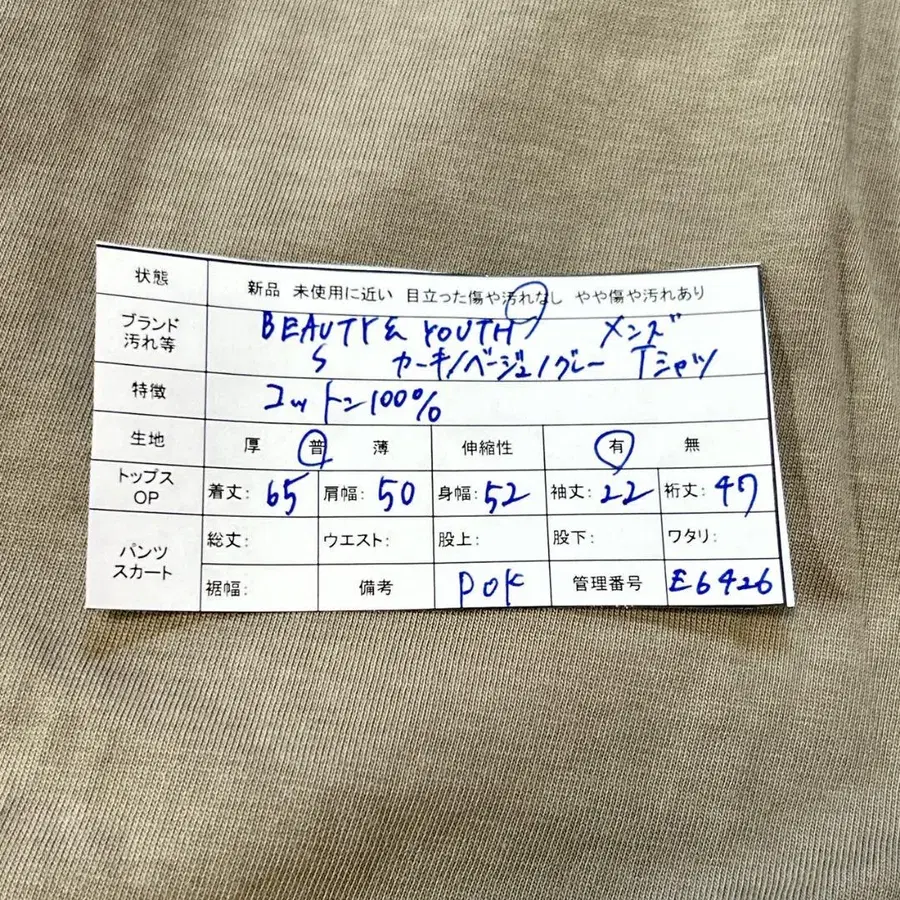 状態 新品 未使用に近い 目立った傷や汚れなし やや傷や汚れあり
ブランド 汚れ等 BEAUTY & YOUTH メンズ
S カーキ/ベージュ/グレー Tシャツ
特徴 コットン100%
生地 厚 普 薄 伸縮性 有 無
トップス OP 着丈: 65 肩幅: 50 身幅: 52 袖丈: 22 裄丈: 47
パンツ スカート 総丈: ウエスト: 股上: 股下: ワタリ:
裾幅: 備考 POK 管理番号 E6426